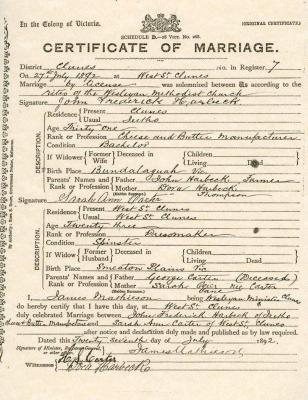 In the Colony of Victoria.
(ORIGINAL CERTIFICATE)
SCHEDULE D.
CERTIFICATE OF MARRIAGE.
District Clunes No. in Register 7
On 27th July 1892 at West St. Clunes
Marriage by License was solemnized between us according to the
rites of the Wesleyan Methodist Church
Signature John Frederick Harbeck
DESCRIPTION.
Residence Present Clunes
Usual
Age Thirty one
Rank or Profession Cheese and Butter Manufacturer
Condition Bachelor
If Widower Former Wife Deceased in Children Living Dead
Birth Place Vic
Parents' Names and Father John Harbeck Farmer
Rank or Profession Mother Dora Harbeck
(Maiden Surname) Thompson
Signature Sarah Ann Carter
DESCRIPTION.
Residence Present West St. Clunes
Usual West St. Clunes
Age Twenty three
Rank or Profession Dressmaker
Condition Spinster
If Widow Former Husband Deceased in Children Living Dead
Birth Place Smeaton Plains Vic
Parents' Names and Father George Carter (Deceased)
Rank or Profession Mother Sarah Carter
(Maiden Surname)
I, James being Wesleyan Minister Clunes
do hereby certify that I have this day, at West St. Clunes
duly celebrated Marriage between John Frederick Harbeck of
Cheese & Butter Manufacturer and Sarah Ann Carter of West St. Clunes
after notice and declaration duly made and published as by law required.
Dated this Twenty Seventh day of July 1892.
Signature of Minister, Registrar-General, or other James
Witnesses
Carter
Dora Harbeck